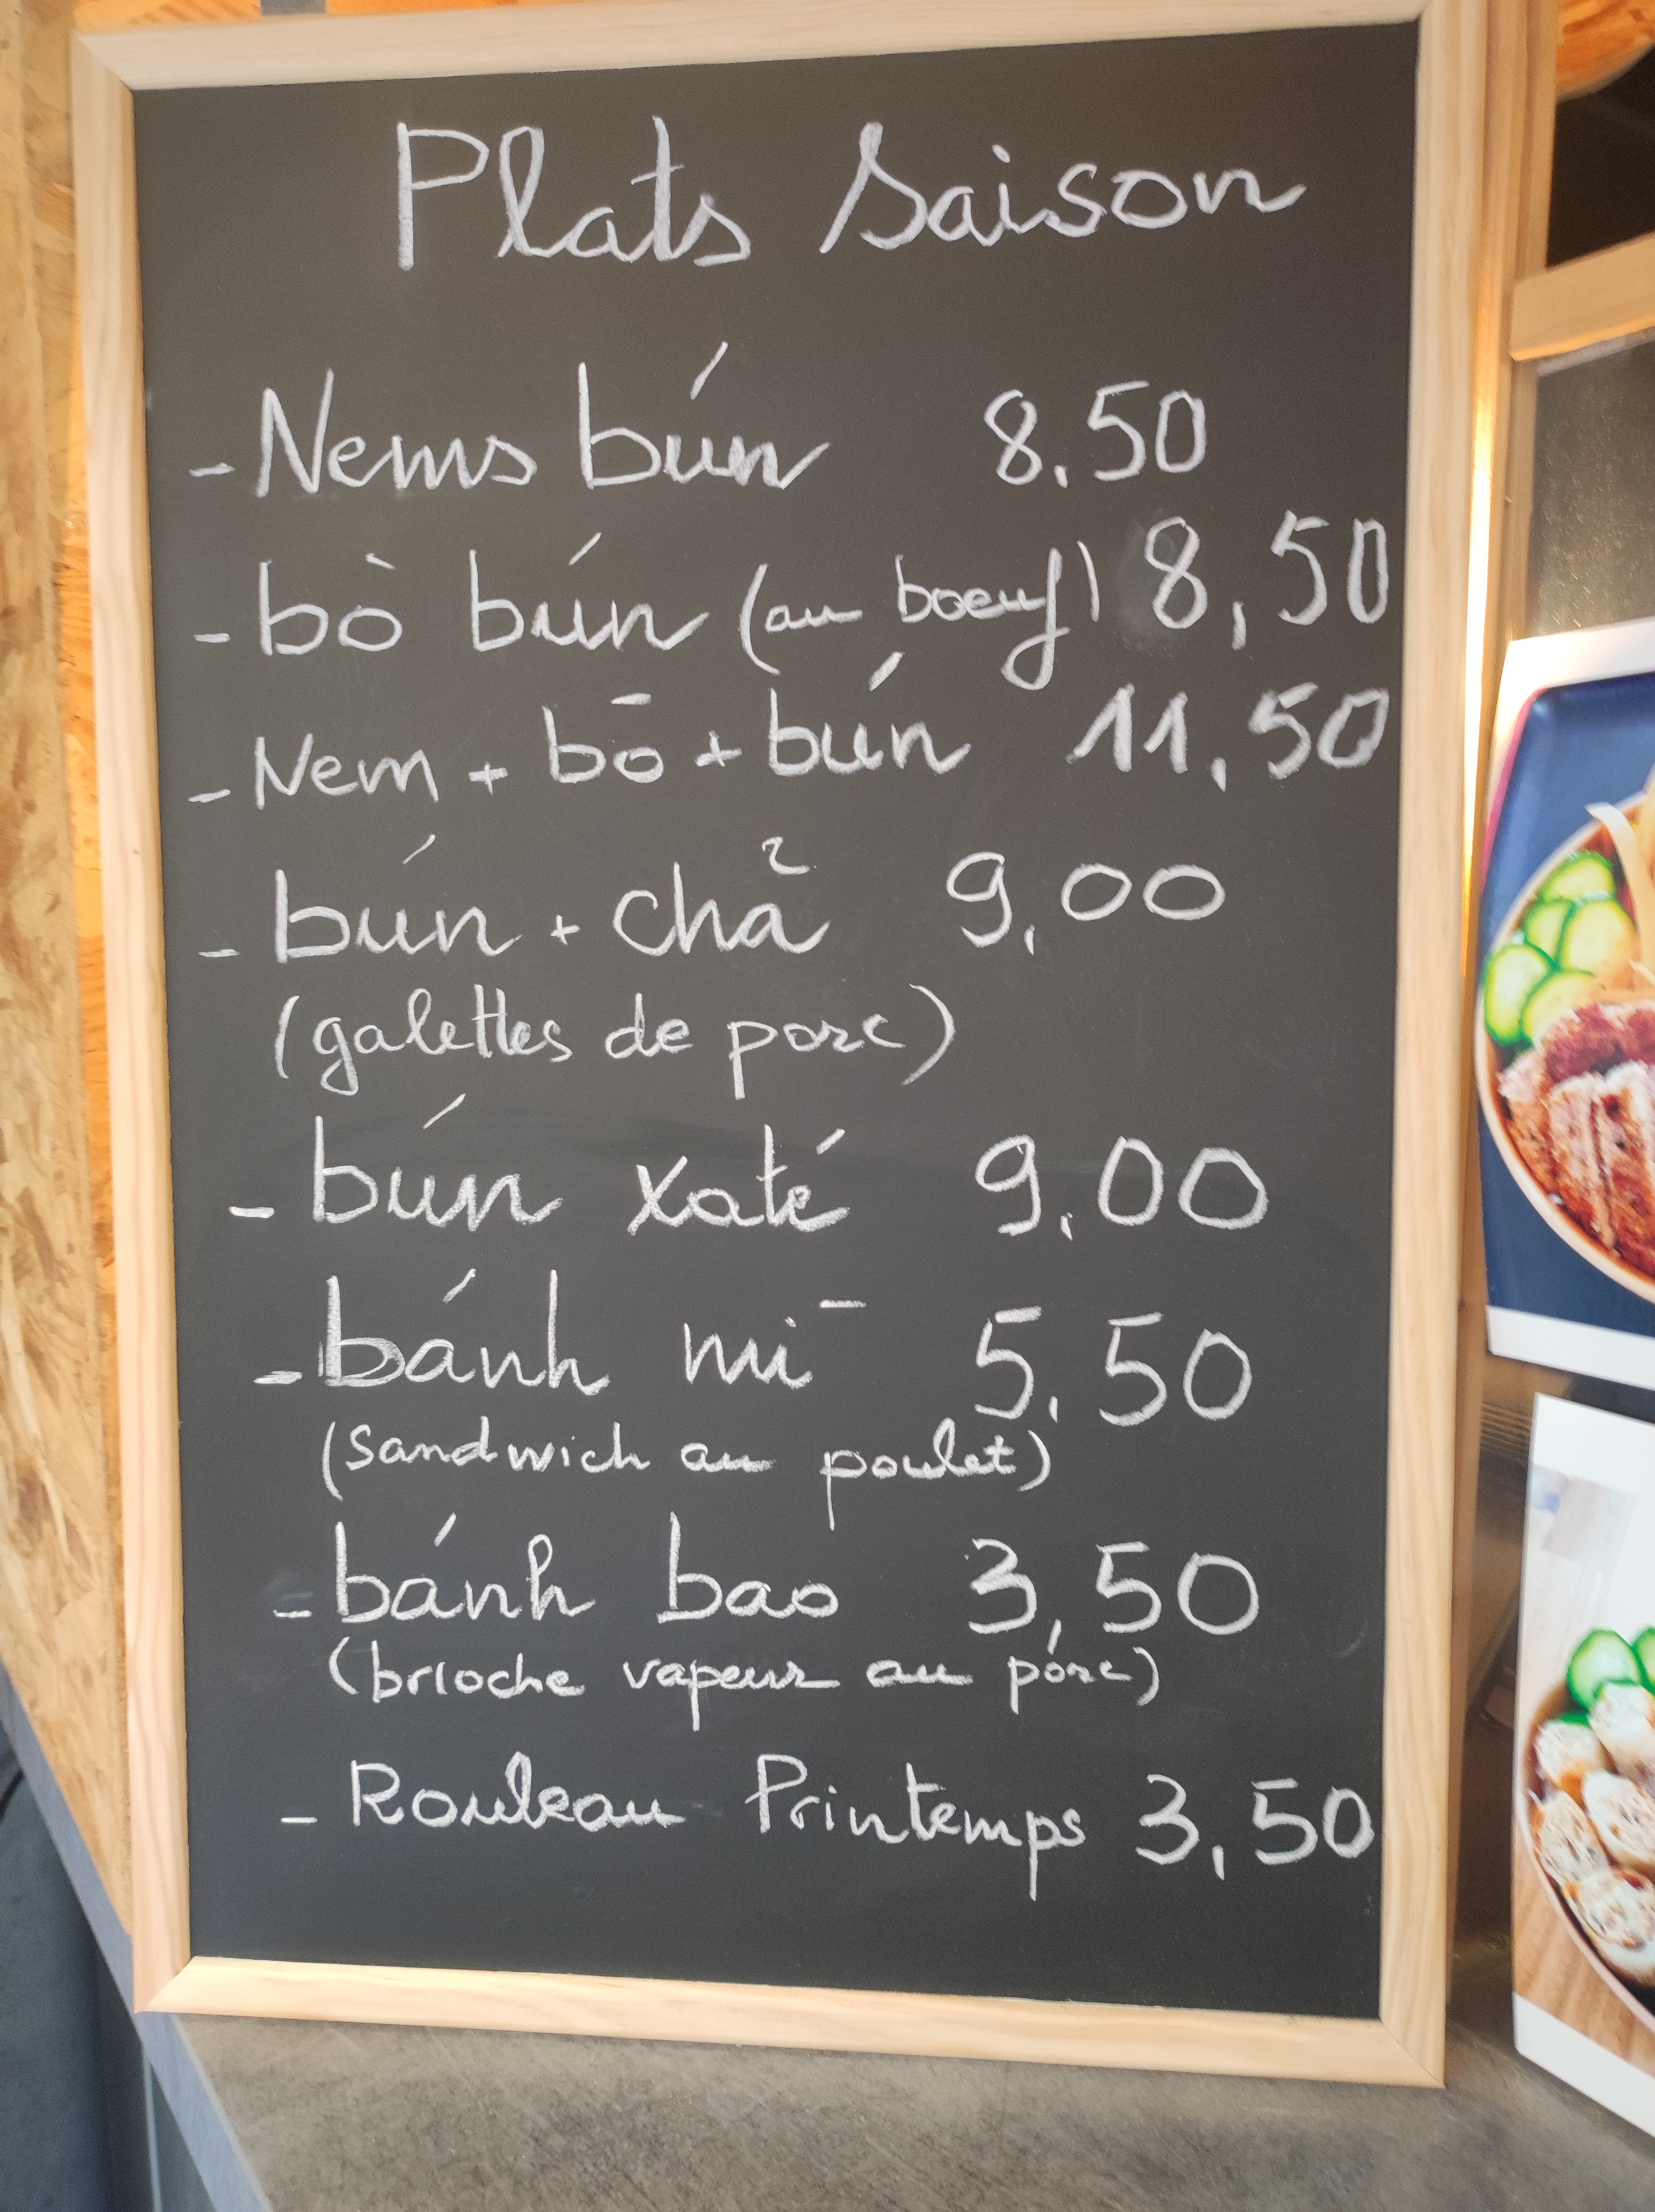 Plats Saison
- Nems bún 8,50
- bò bún (au boeuf) 8,50
- Nem + bō + bún 11,50
- bún + chả 9,00
(galettes de porc)
- bún xaté 9,00
- bánh mī 5,50
(sandwich au poulet)
- bánh bao 3,50
(brioche vapeur au pórc)
- Rouleau Printemps 3,50